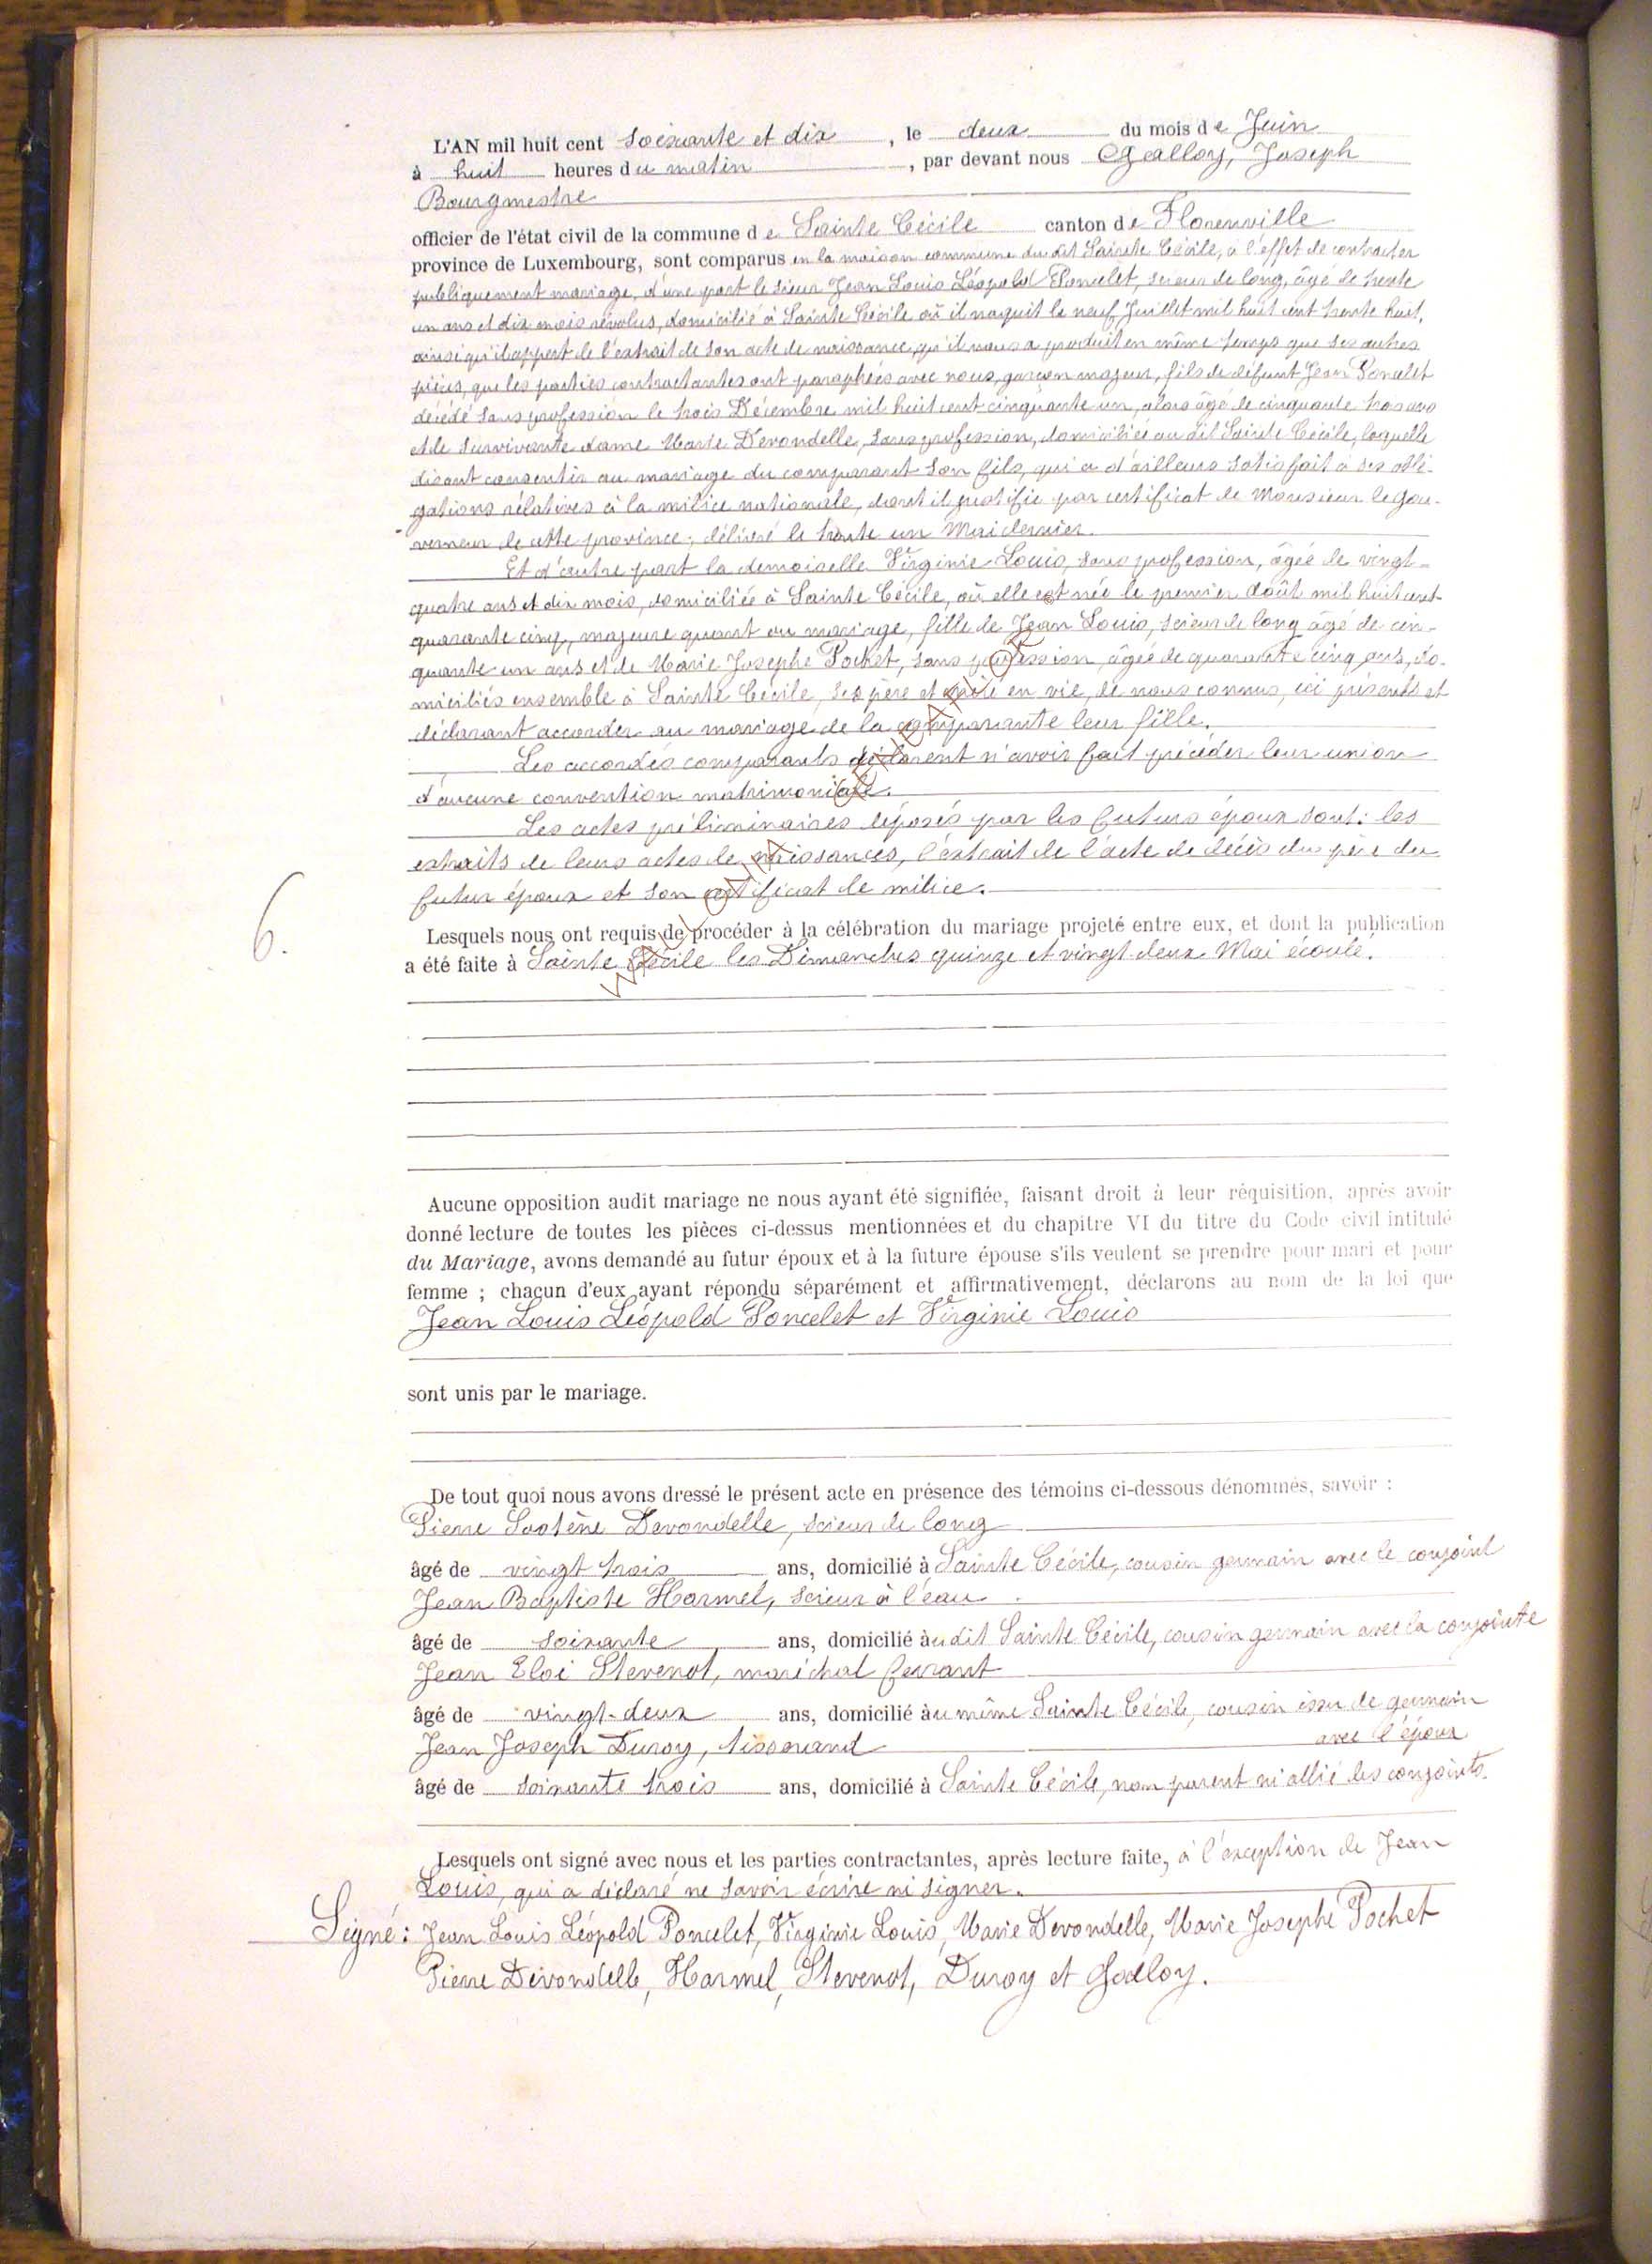 L'AN mil huit cent soixante et dix, le deux du mois de Juin
à huit heures du matin, par devant nous Galloy, Joseph
Bourgmestre
officier de l'état civil de la commune de Sainte Cécile canton de Florenville
province de Luxembourg, sont comparus en la maison commune du dit Sainte Cécile, à l'effet de contracter
publiquement mariage, d'une part le sieur Jean Louis Léopold Poncelet, scieur de long, âgé de trente
un ans et dix mois révolus, domicilié à Sainte Cécile où il naquit le neuf Juillet mil huit cent trente huit,
ainsi qu'il appert de l'extrait de son acte de naissance, qu'il nous a produit en même temps que ses autres
pièces, que les parties contractantes ont paraphées avec nous, garçon majeur, fils de défunt Jean Poncelet
décédé sans profession le trois Décembre mil huit cent cinquante un, alors âgé de cinquante trois ans
et de survivante dame Marie Devondelle, sans profession, domiciliée au dit Sainte Cécile, laquelle
disant consentir au mariage du comparant son fils, qui a d'ailleurs satisfait à ses obli-
gations rélatives à la milice nationale, dont il justifie par certificat de Monsieur le gou-
verneur de cette province, délivré le trente un Mai dernier.
Et d'autre part la demoiselle Virginie Louis, sans profession, âgée de vingt-
quatre ans et dix mois, domiciliée à Sainte Cécile, où elle est née le premier Août mil huit cent
quarante cinq, majeure quant au mariage, fille de Jean Louis, scieur de long âgé de cin-
quante un ans et de Marie Josephe Pochet, sans profession, âgée de quarante cinq ans, do-
miciliés ensemble à Sainte Cécile, ses père et mère en vie, de nous connus, ici présents et
déclarant accorder au mariage de la comparante leur fille.
Les accordés comparants déclarent n'avoir fait précéder leur union
d'aucune convention matrimoniale.
Les actes préliminaires déposés par les futurs époux sont: les
extraits de leurs actes de naissances, l'extrait de l'acte de décès du père du
futur époux et son certificat de milice.
6.
Lesquels nous ont requis de procéder à la célébration du mariage projeté entre eux, et dont la publication
a été faite à Sainte Cécile les Dimanches quinze et vingt-deux Mai écoulé.
Aucune opposition audit mariage ne nous ayant été signifiée, faisant droit à leur réquisition, après avoir
donné lecture de toutes les pièces ci-dessus mentionnées et du chapitre VI du titre du Code civil intitulé
du Mariage, avons demandé au futur époux et à la future épouse s'ils veulent se prendre pour mari et pour
femme ; chacun d'eux ayant répondu séparément et affirmativement, déclarons au nom de la loi que
Jean Louis Léopold Poncelet et Virginie Louis
sont unis par le mariage.
De tout quoi nous avons dressé le présent acte en présence des témoins ci-dessous dénommés, savoir :
Pierre Sostène Devondelle, scieur de long
âgé de vingt trois ans, domicilié à Sainte Cécile, cousin germain avec le conjoint
Jean Baptiste Harmel, scieur à l'eau
âgé de soixante ans, domicilié àudit Sainte Cécile, cousin germain avec la conjointe
Jean Eloi Stevenot, maréchal ferrant
âgé de vingt-deux ans, domicilié àu même Sainte Cécile, cousin issu de germain
avec l'époux
Jean Joseph Duroy, tisserand
âgé de soixante trois ans, domicilié à Sainte Cécile, non parent ni allié des conjoints.
Lesquels ont signé avec nous et les parties contractantes, après lecture faite, à l'exception de Jean
Louis, qui a déclaré ne savoir écrire ni signer.
Signé : Jean Louis Léopold Poncelet, Virginie Louis, Marie Devondelle, Marie Josephe Pochet
Pierre Devondelle, Harmel, Stevenot, Duroy et Galloy.